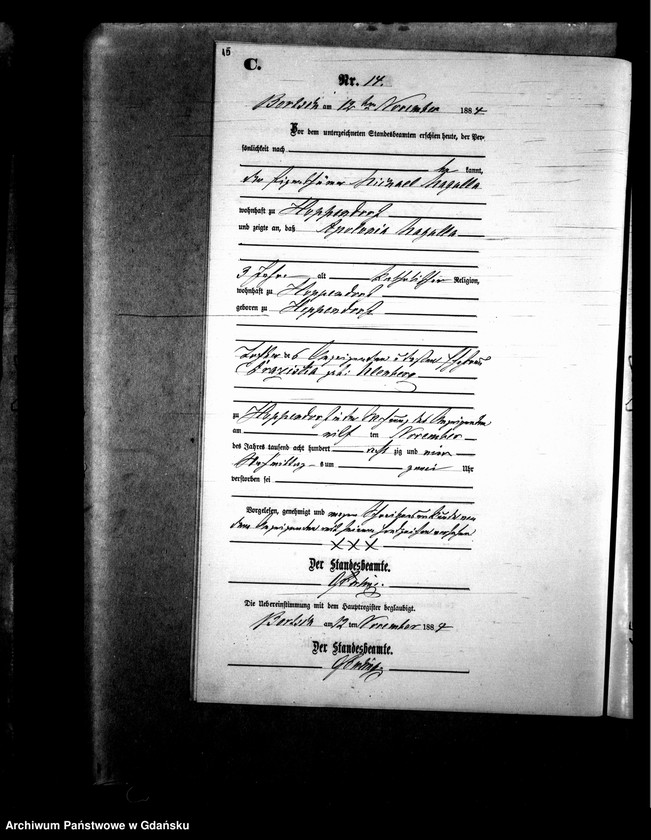 15
C.
Nr. 14.
am 12 ten November 1884
Vor dem unterzeichneten Standesbeamten erschien heute, der Per-
sönlichkeit nach
kannt,
der Eigenthümer Michael
wohnhaft zu Hoppendorf
und zeigte an, daß Apolonia
3 Jahre alt katholischer Religion,
wohnhaft zu Hoppendorf
geboren zu Hoppendorf
Tochter des Anzeigenden
zu Hoppendorf in der Wohnung des Anzeigenden
am elf ten November
des Jahres tausend acht hundert acht zig und vier
Nachmittags um zwei Uhr
verstorben sei
Vorgelesen, genehmigt und wegen
dem Anzeigenden mit seinem Handzeichen versehen
XXX
Der Standesbeamte.
Die Uebereinstimmung mit dem Hauptregister beglaubigt.
am 12 ten November 1884
Der Standesbeamte.
Archiwum Państwowe w Gdańsku